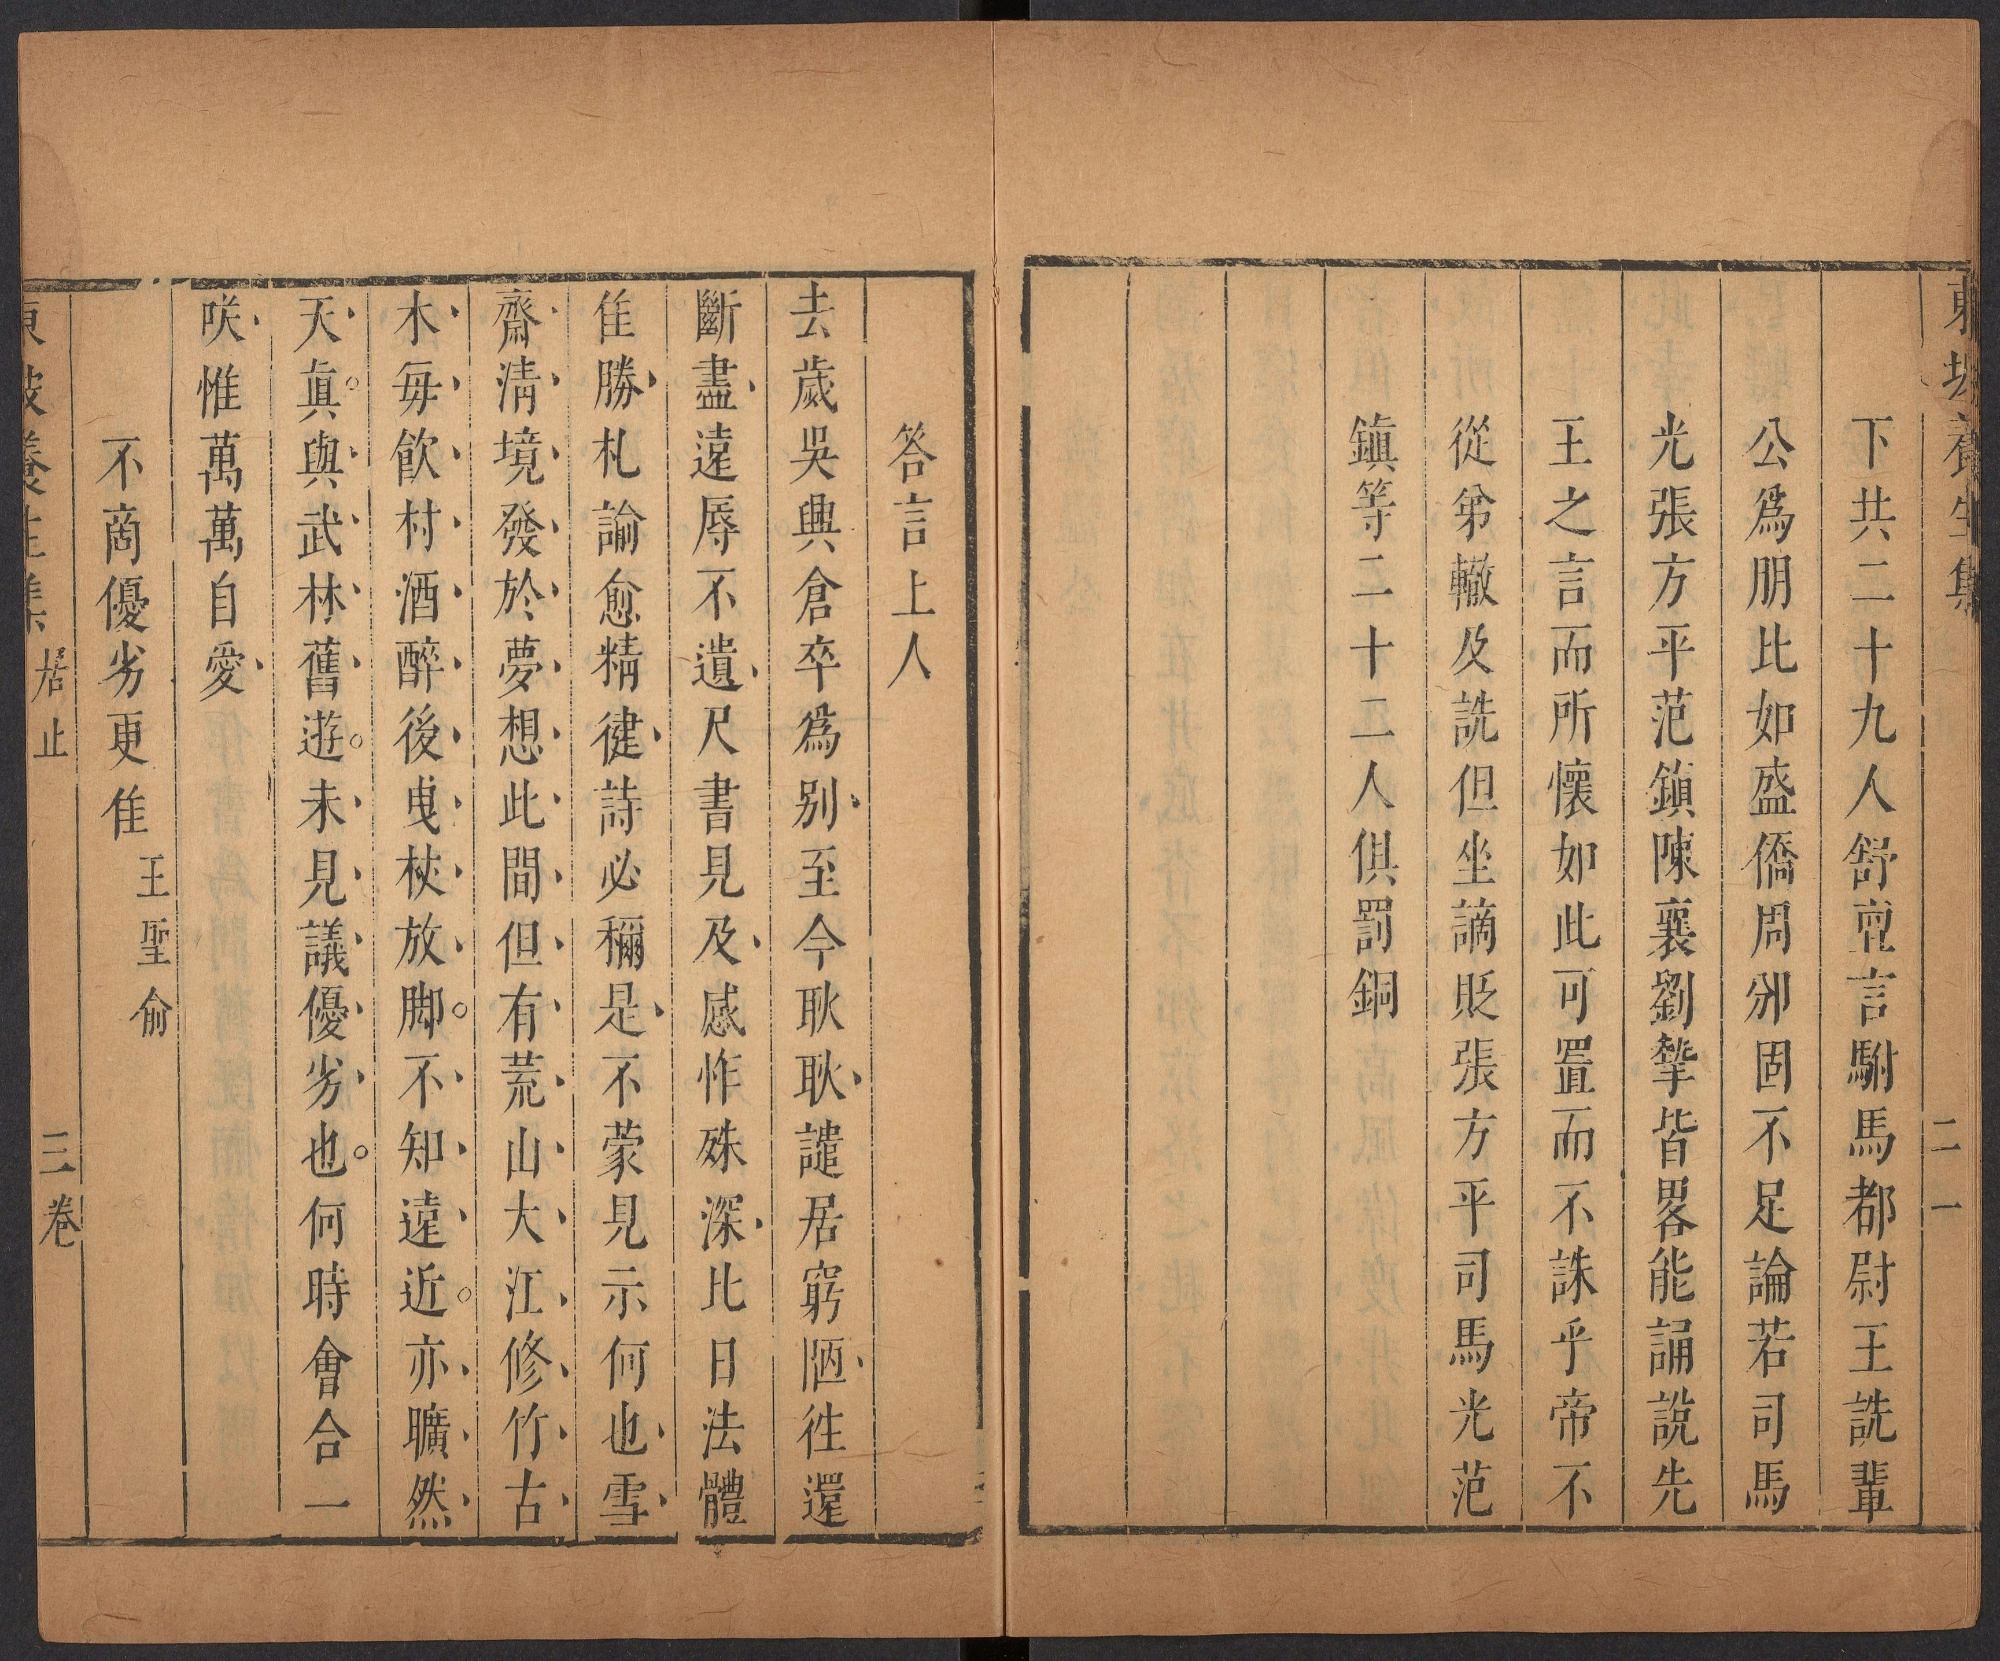 東坡養生集
二一
下共二十九人舒亶言駙馬都尉王詵輩
公爲朋比如盛僑周邠固不足論若司馬
光張方平范鎭陳襄劉摯皆畧能誦說先
王之言而所懷如此可置而不誅乎帝不
從弟轍及詵但坐謫貶張方平司馬光范
鎭等二十二人俱罰銅
答言上人
去歲吳興倉卒爲别至今耿耿譴居窮陋徃還
斷盡遠辱不遺尺書見及感怍殊深比日法體
佳勝札諭愈精健詩必稱是不蒙見示何也雪
齋清境發於夢想此間但有荒山大江修竹古
木每飲村酒醉後曳杖放脚不知遠近亦曠然
天眞與武林舊遊未見議優劣也何時會合一
咲惟萬萬自愛
不商優劣更佳王聖俞
東坡養生集 居止 三卷